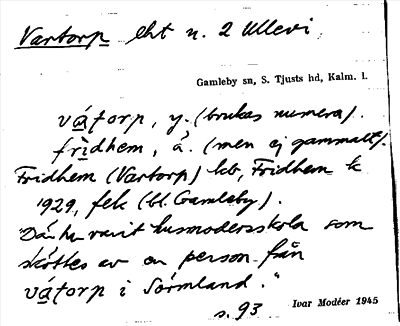 Vartorp lht u. 2 Ullevi
Gamleby sn, S. Tjusts hd, Kalm. l.
vátorp, y. (brukas numera).
frìdhem, ä. (men ej gammalt).
Fridhem (Vartorp) lcb, Fridhem k
1929, fek (bl. Gamleby).
"Där har varit husmodersskola som
sköttes av en person från
vátorp i Sörmland."
s. 93 Ivar Modéer 1945